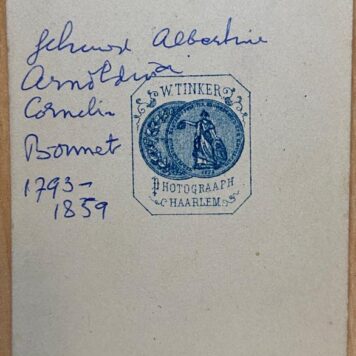 Albertine
Arnoldina
Cornelia
Bonnet
1793-
1859
W. TINKER
PHOTOGRAAPH
HAARLEM